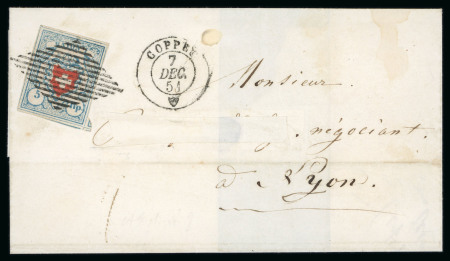 COPPET
7
DEC.
51
5 rp
Monsieur
négociant.
à Lyon.